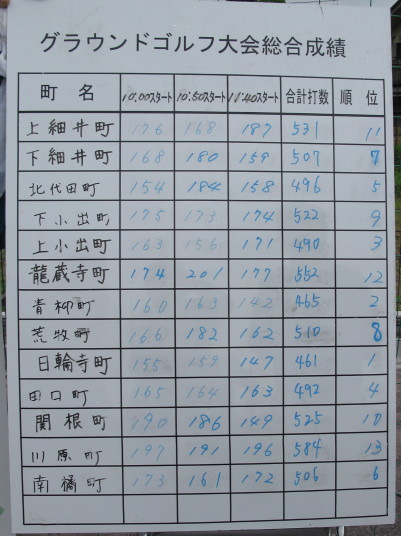 グラウンドゴルフ大会総合成績
町名 10:00スタート 10:50スタート 11:40スタート 合計打数 順位
上細井町 176 168 187 531 11
下細井町 168 180 159 507 7
北代田町 154 184 158 496 5
下小出町 175 173 174 522 9
上小出町 163 156 171 490 3
龍蔵寺町 174 201 177 552 12
青柳町 160 163 142 465 2
荒牧町 166 182 162 510 8
日輪寺町 155 159 147 461 1
田口町 165 164 163 492 4
関根町 190 186 149 525 10
川原町 197 191 196 584 13
南橘町 173 161 172 506 6